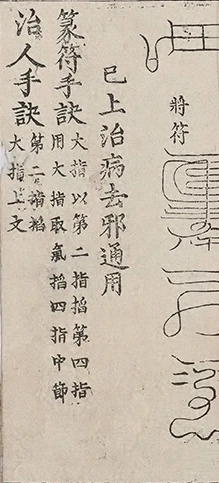 將符
巳上治病去邪通用
篆符手訣
大指以第二指掐第四指
用大指取氣掐四指中節
治人手訣
第二指掐
大指上文